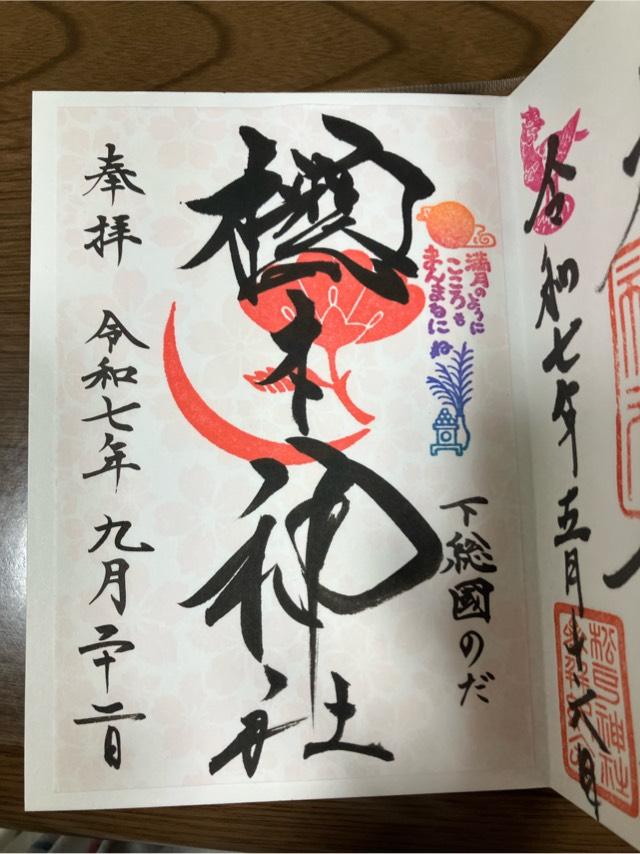 奉拝
令和七年九月二十二日
櫻木神社
満月のように
こころも
まんまるにね
下総國のだ
令和七年五月十八日